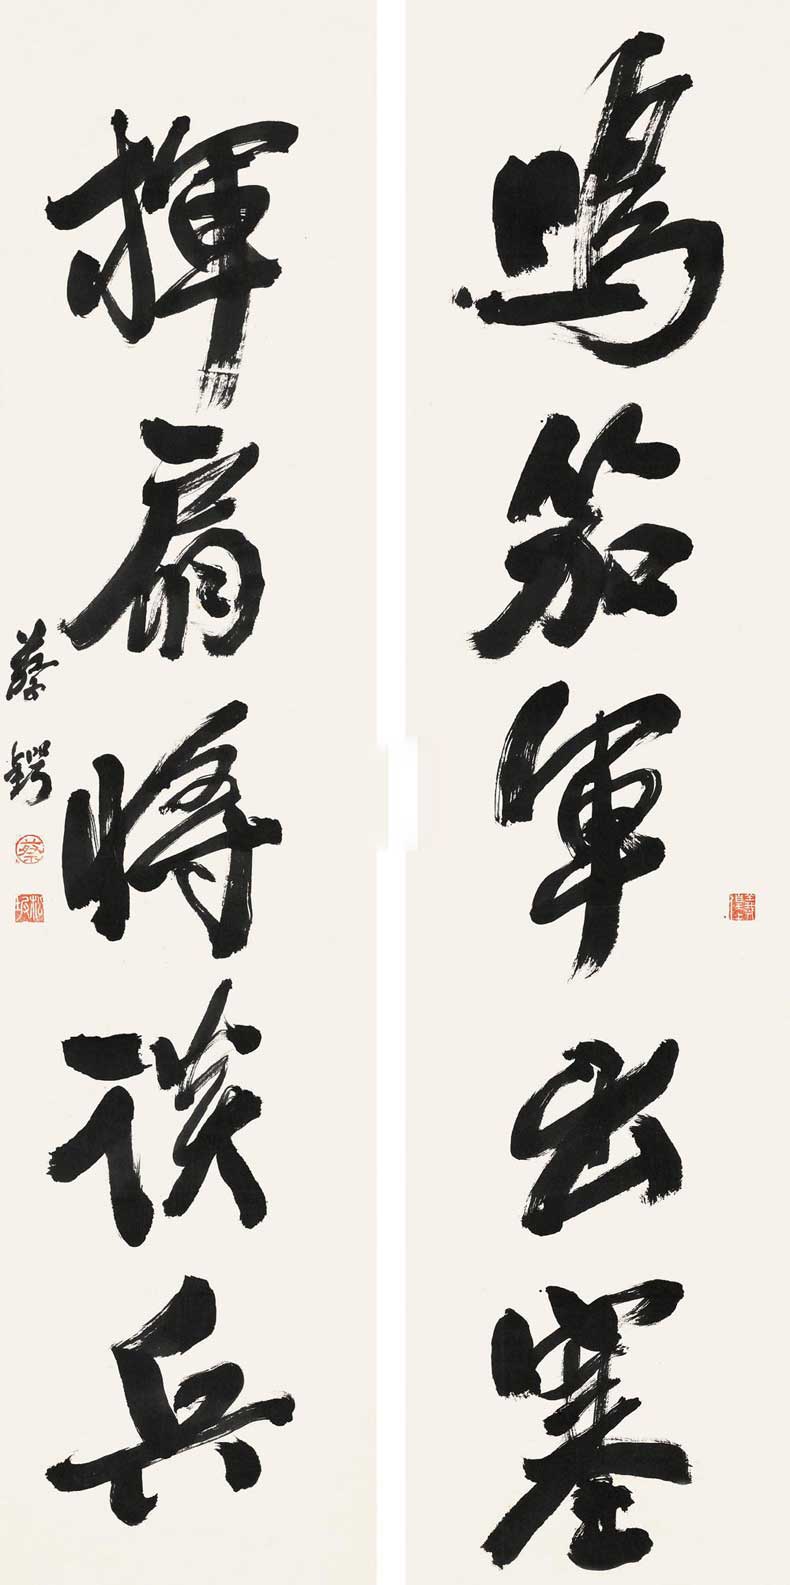 鳴笳軍出塞
揮扇將談兵
蔡鍔
蔡
松坡